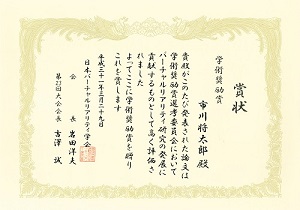 賞状
学術奨励賞
市川将太郎 殿
貴殿がこのたび発表された論文は
学術奨励賞選考委員会において
バーチャルリアリティ研究の発展に
貢献するものとして高く評価さ
れました
よってここに学術奨励賞を贈り
これを賞します
平成二十一年三月二十九日
日本バーチャルリアリティ学会
会長 岩田洋夫
第21回大会会長 吉澤誠